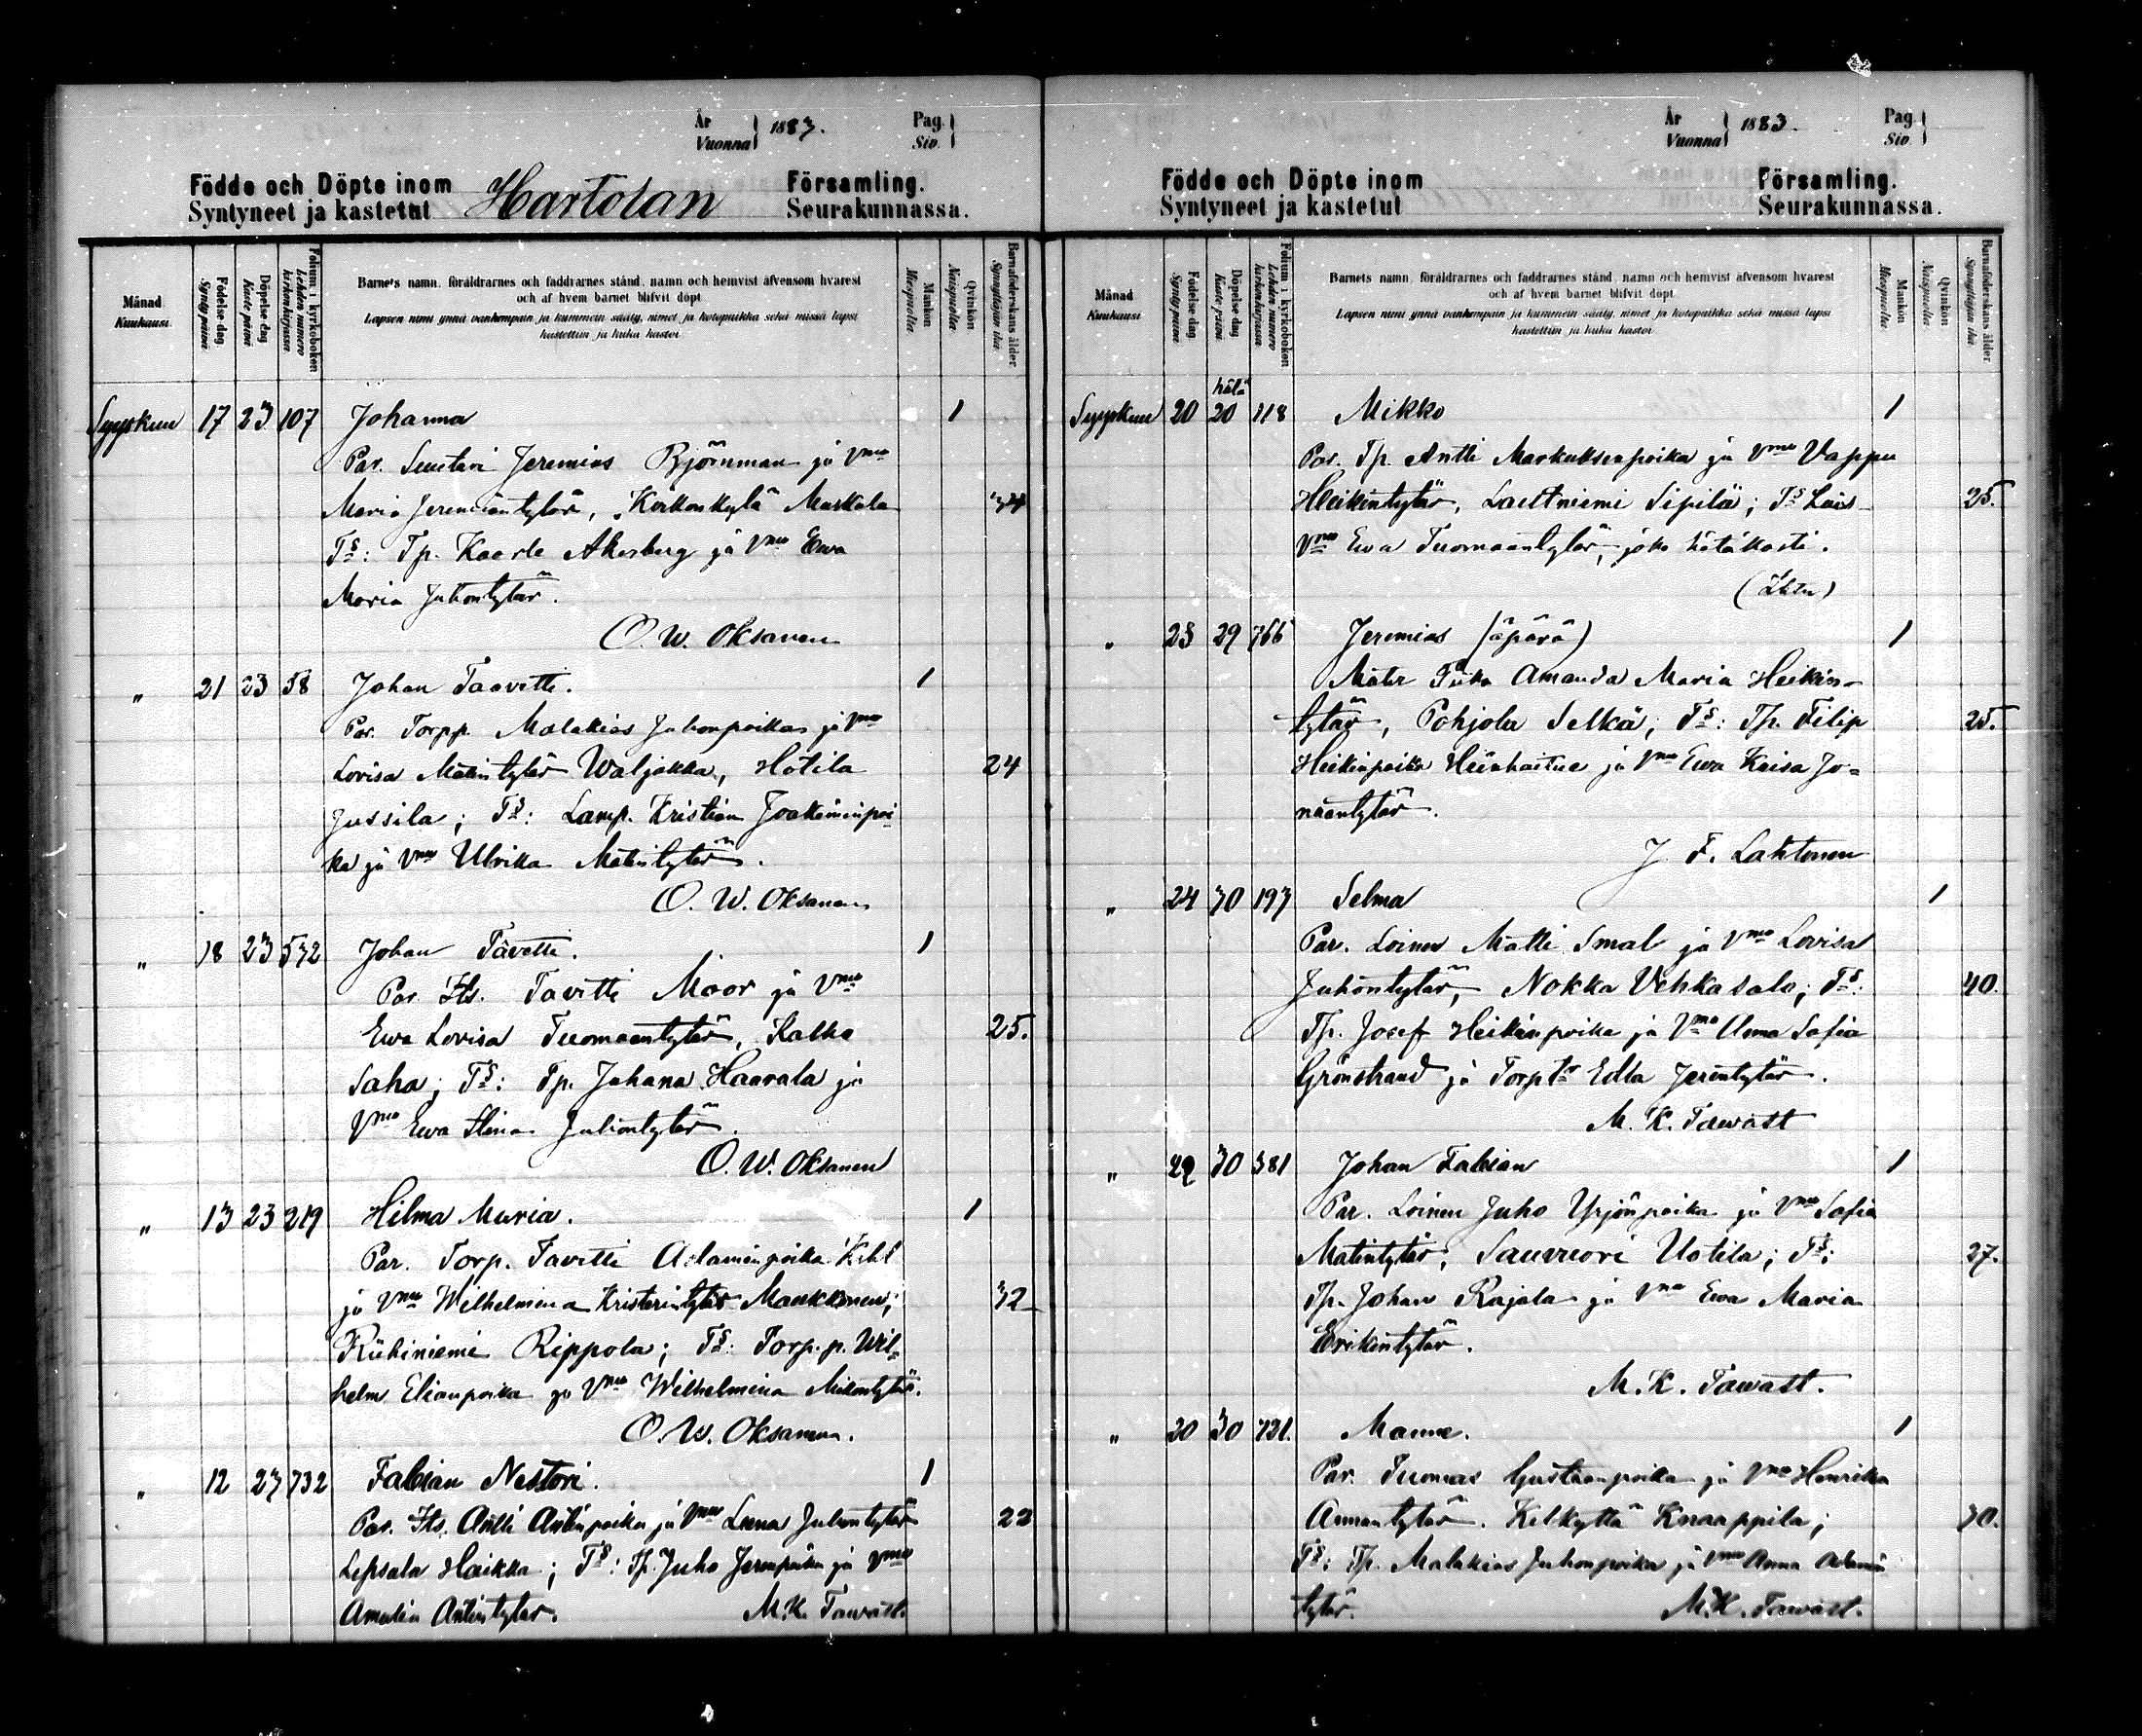 År
Vuonna 1883.
Pag.
Siv.
Födde och Döpte inom
Syntyneet ja kastetut
Hartolan
Församling.
Seurakunnassa.
Månad
Kuukausi.
Födelse dag
Syntypäivä
Döpelse dag
Kaste päivä
Folium i kyrkoboken
Lehden numero kirkonkirjassa
Barnets namn, föräldrarnes och faddrarnes stånd, namn och hemvist äfvensom hvarest
och af hvem barnet blifvit döpt
Lapsen nimi ynnä vanhempain ja kummein sääty, nimet ja kotopaikka sekä missä lapsi
kastettiin ja kuka kastoi
Mankön
Miespuolia
Qvinkön
Naispuolia
Barnaföderskans ålder.
Synnyttäjän ikä
Syyskuu 17 23 107 Johanna 1
Par. Suutari Jeremias Björnman ja Vmo
Maria Jeremiantytär, Kirkonkylä Maskala 34
Ts: Tp. Kaarle Akerberg ja Vmo Ewa
Maria Juhontytär.
O. W. Oksanen
" 21 23 58 Johan Taavetti. 1
Par. Torpp. Malakias Juhonpoika ja Vmo
Lovisa Matintytär Waljakka, Hotila 24
Jussila; Ts: Lamp. Kristian Joakiminpoi-
ka ja Vmo Ulrika Matintytär.
O. W. Oksanen
" 18 23 532 Johan Tavetti. 1
Par. Its. Tavitti Moor ja Vmo
Ewa Lovisa Tuomaantytär, Kalho 25.
Saha; Ts: Tp. Johana Haavala ja
Vmo Ewa Stina Juhontytär.
O. W. Oksanen
" 13 23 219 Hilma Maria. 1
Par. Torp. Tavitti Adaminpoika Kihl
ja Vmo Wilhelmina Kristerintytär Mankkonen, 32
Riihiniemi Rippola; Ts: Torp.p. Wil-
helm Elianpoika ja Vmo Wilhelmina Mikontytär.
O. W. Oksanen.
" 12 23 732 Fabian Nestori. 1
Par. Its. Antti Antinpoika ja Vmo Leena Juhontytär 23
Lepsala Haikka; Ts: Tp. Juho Jerenpoika ja Vmo
Amalia Antintytär. M. K. Tawast.
År
Vuonna 1883.
Pag.
Siv.
Födde och Döpte inom
Syntyneet ja kastetut
Församling.
Seurakunnassa.
Månad
Kuukausi.
Födelse dag
Syntypäivä
Döpelse dag
Kaste päivä
Folium i kyrkoboken
Lehden numero kirkonkirjassa
Barnets namn, föräldrarnes och faddrarnes stånd, namn och hemvist äfvensom hvarest
och af hvem barnet blifvit döpt
Lapsen nimi ynnä vanhempain ja kummein sääty, nimet ja kotopaikka sekä missä lapsi
kastettiin ja kuka kastoi
Mankön
Miespuolia
Qvinkön
Naispuolia
Barnaföderskans ålder.
Synnyttäjän ikä
hätä
Syyskuu 20 20 118 Mikko 1
Par. Tp. Antti Markuksenpoika ja Vmo Vappu
Heikintytär, Lastniemi Sipilä; Ts Lois- 25.
Vmo Ewa Tuomaantytär, joka hätäkasti.
" 23 29 766 Jeremias (äpärä) 1
Matr Piika Amanda Maria Heikin-
tytär, Pohjola Selkä; Ts: Tp. Filip 25.
Heikinpoika Heinhaitue ja Vmo Ewa Kaisa Jo-
naantytär.
J. F. Lahtonen
" 24 30 193 Selma 1
Par. Loinen Matti Smal ja Vmo Lovisa
Juhontytär, Nokka Vehkasalo; Ts: 40.
Tp. Josef Heikinpoika ja Vmo Anna Sofia
Grönstrand ja Torptr Edla Jerentytär.
M. K. Tawast
" 29 30 381 Johan Fabian 1
Par. Loinen Juho Yrjönpoika ja Vmo Sofia
Matintytär, Sauvuori Uotila; Ts: 27.
Tp. Johan Rajala ja Vmo Ewa Maria
Erikintytär.
M. K. Tawast.
" 20 30 721. Manne. 1
Par. Tuomas Gustaanpoika ja Vmo Henrika
Annantytär. Kelkyttä Knaappila; 30.
Ts: Tp. Malakias Juhonpoika ja Vmo Anna Adamin
tytär. M. K. Tawast.